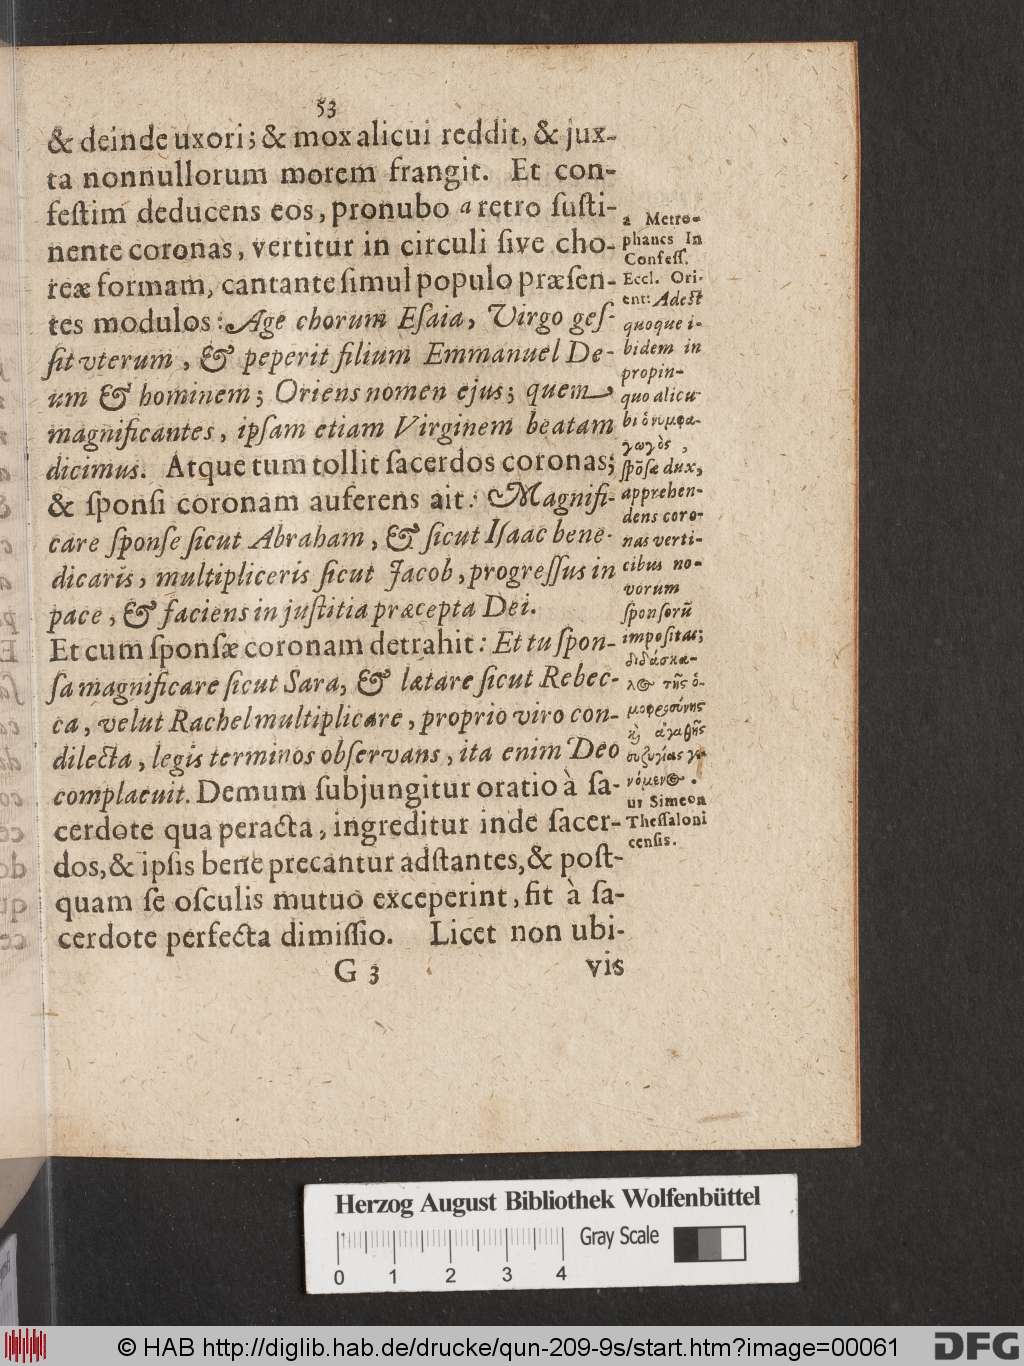 53
& deinde uxori; & mox alicui reddit, & jux-
ta nonnullorum morem frangit. Et con-
feſtim deducens eos, pronubo a retro ſuſti-
nente coronas, vertitur in circuli ſive cho-
reæ formam, cantante ſimul populo præſen-
tes modulos: Age chorum Eſaia, Virgo geſ-
ſit vterum, & peperit filium Emmanuel De-
um & hominem; Oriens nomen ejus; quem
magnificantes, ipſam etiam Virginem beatam
dicimus. Atque tum tollit ſacerdos coronas;
& ſponſi coronam auferens ait: Magnifi-
care ſponſe ſicut Abraham, & ſicut Iſaac bene-
dicaris, multipliceris ſicut Jacob, progreſſus in
pace, & faciens in juſtitia præcepta Dei.
Et cum ſponſæ coronam detrahit: Et tu ſpon-
ſa magnificare ſicut Sara, & lætare ſicut Rebec-
ca, velut Rachel multiplicare, proprio viro con-
dilecta, legis terminos obſervans, ita enim Deo
complacuit. Demum ſubjungitur oratio à ſa-
cerdote qua peracta, ingreditur inde ſacer-
dos, & ipſis bene precantur adſtantes, & poſt-
quam ſe oſculis mutuò exceperint, fit à ſa-
cerdote perfecta dimiſſio. Licet non ubi-
G 3 vis
a Metro-
phanes In
Confeſſ.
Eccl. Ori-
ent: Adeſt
quoque i-
bidem in
propin-
quo alicu-
bi ὁ νυμφα-
γωγὸς,
ſpõſæ dux,
apprehen-
dens coro-
nas verti-
cibus no-
vorum
ſponſorũ
impoſitas;
διδάσκα-
λ@ τῆς ὁ-
μοφροσύνης
ϗ ἀγαθῆς
συζυγίας γι-
νόμεν@.
ut Simeon
Theſſaloni
cenſis.
Herzog August Bibliothek Wolfenbüttel
Gray Scale
0 1 2 3 4
© HAB http://diglib.hab.de/drucke/qun-209-9s/start.htm?image=00061
DFG